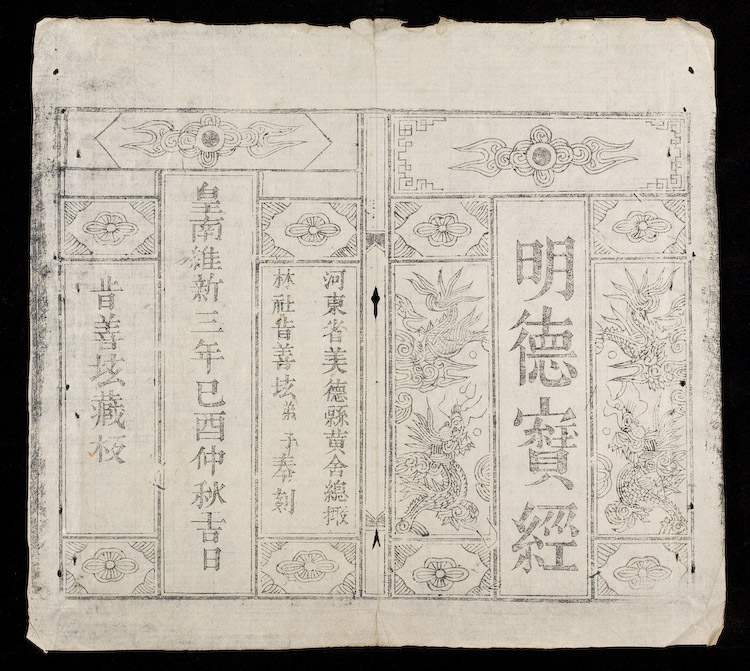 明德寶經
河東省美德縣黄舍總撖
林社皆善坛弟子奉刻
皇南維新三年己酉仲秋吉日
皆善坛藏板